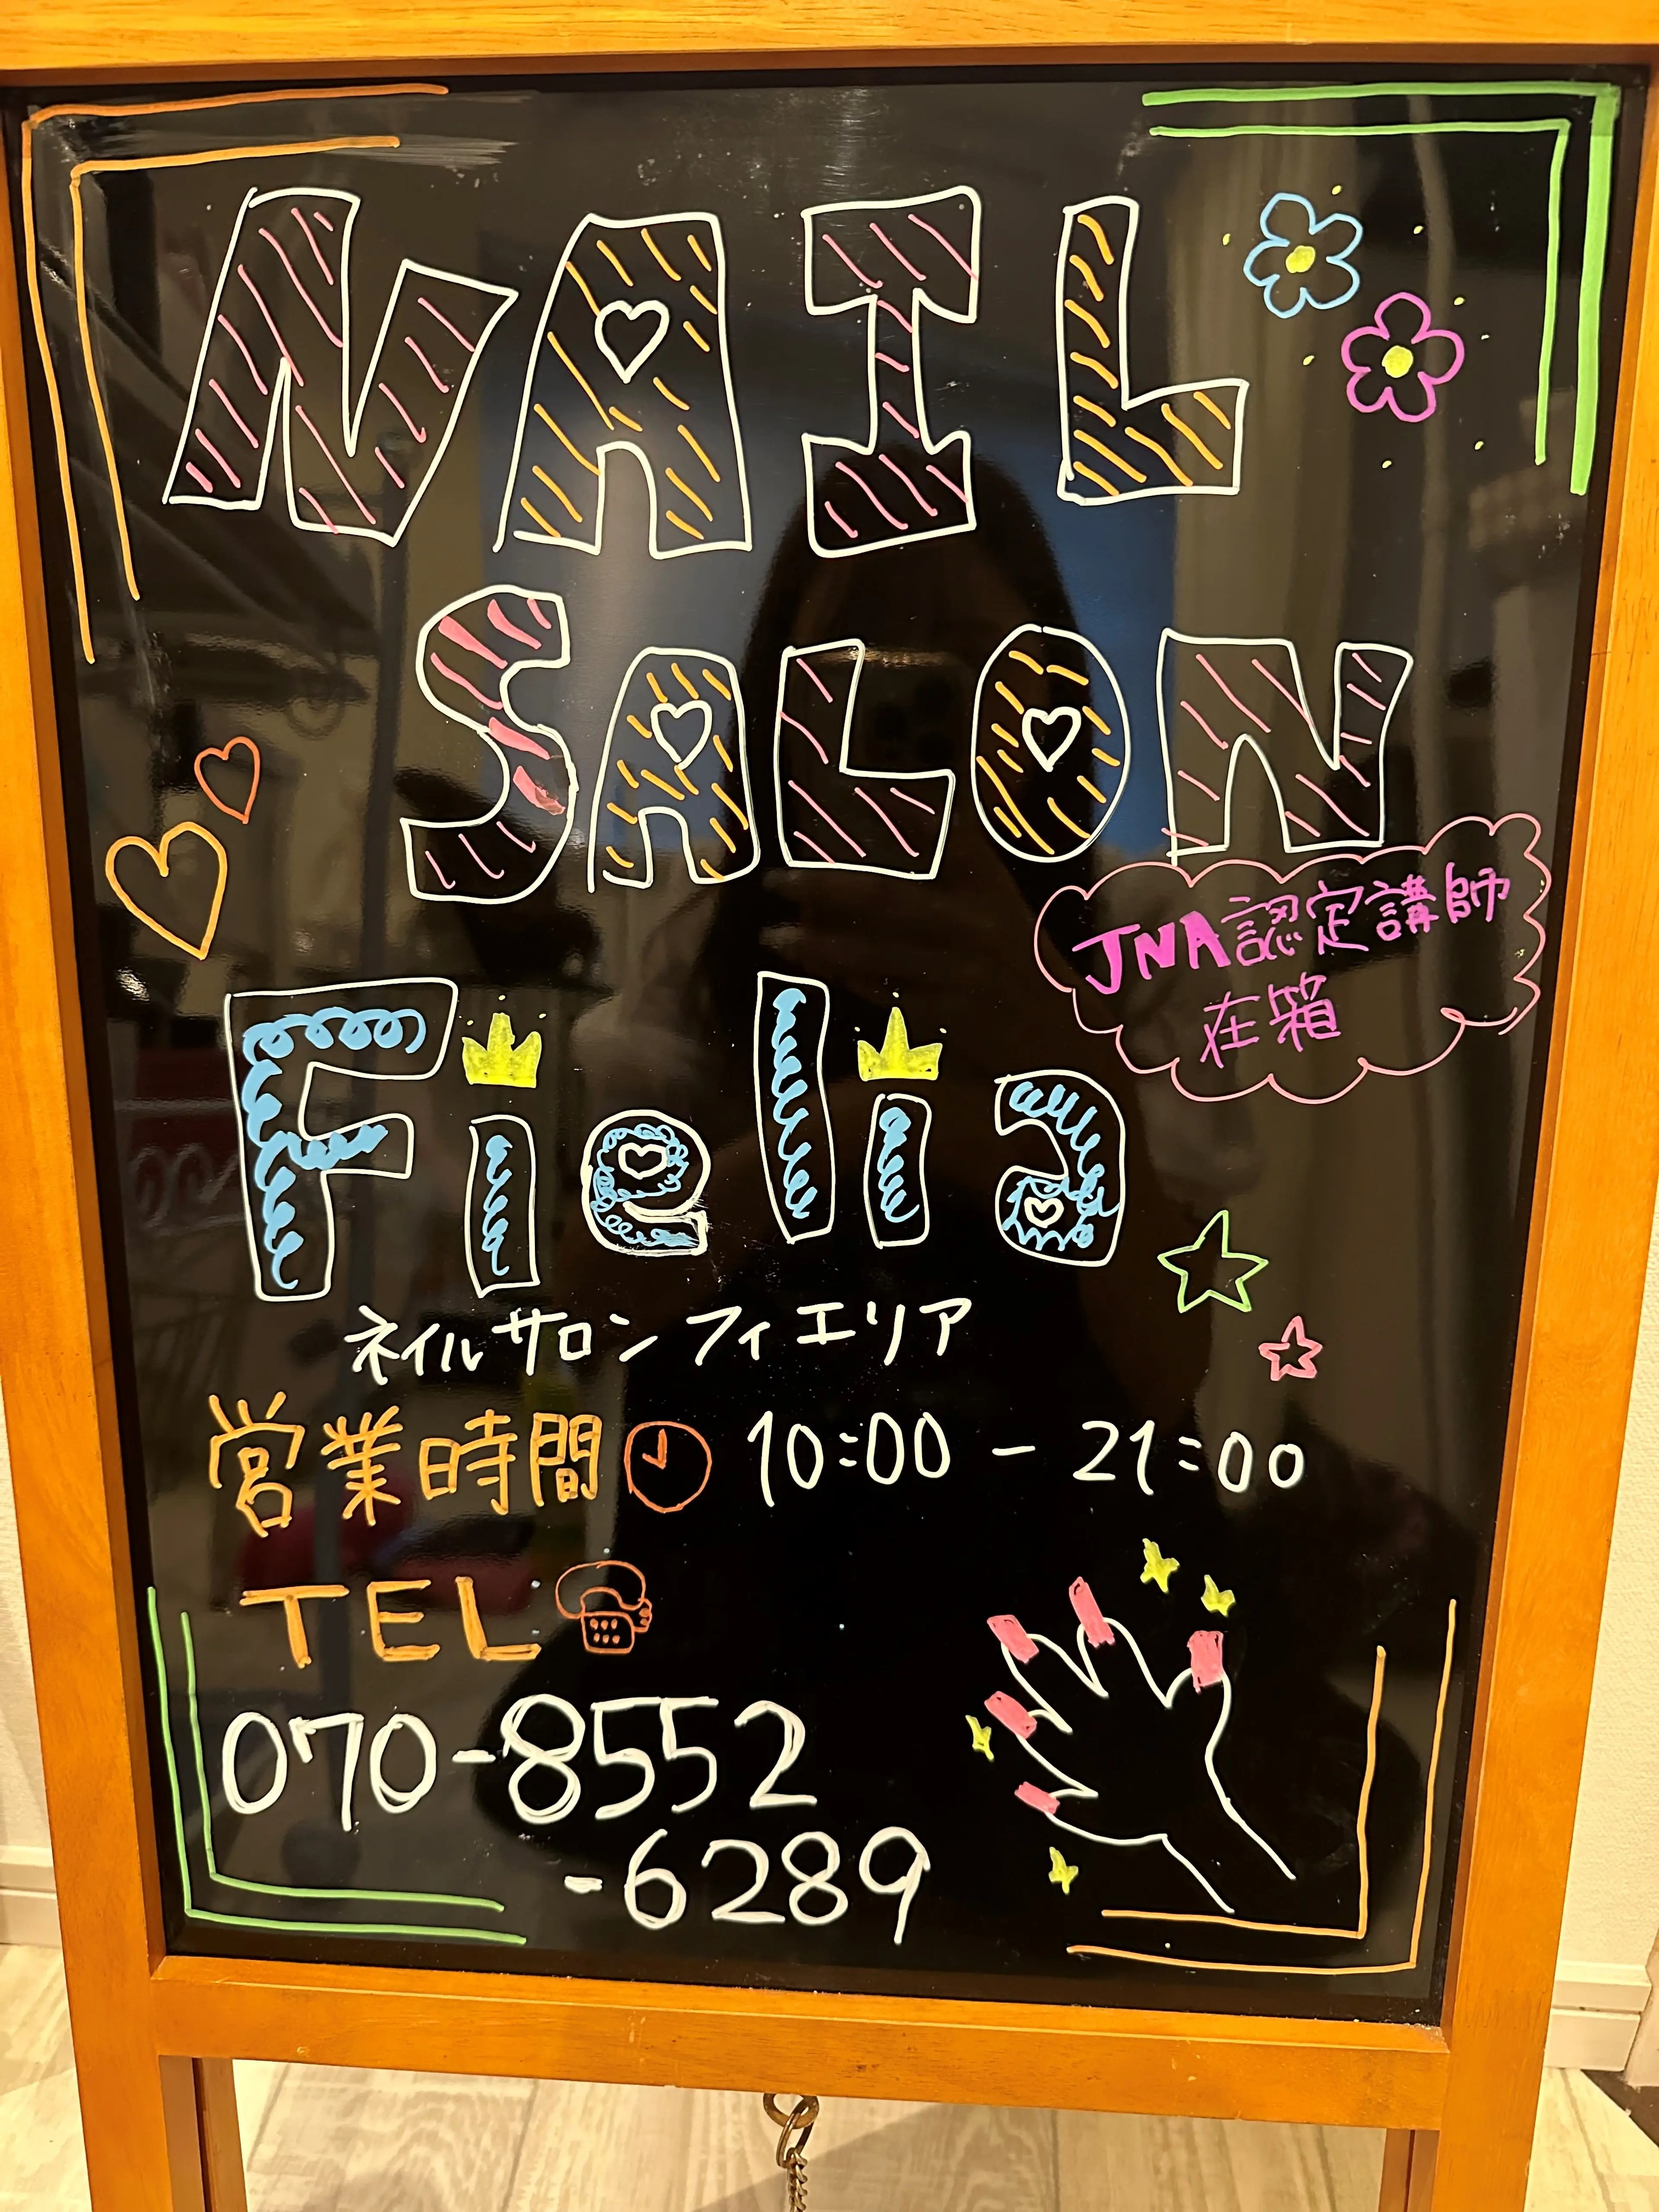 NAIL
SALON
JNA認定講師
在籍
Fiellia
ネイルサロンフィエリア
営業時間 10:00 - 21:00
TEL
070-8552
-6289